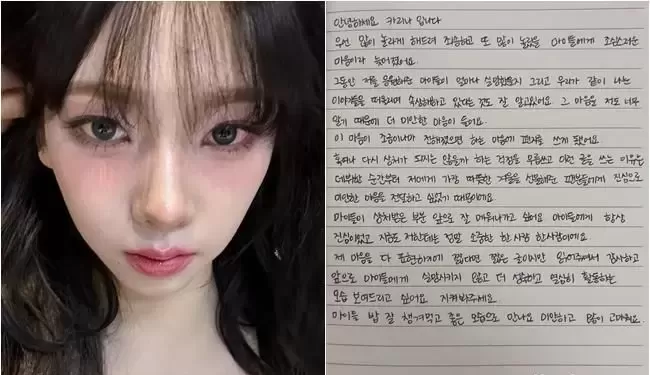 안녕하세요 카리나 입니다
우선 많이 놀라게 해드려 죄송하고 또 많이 놀랐을 마이들에게 조심스러운
마음이라 늦어졌어요.
그동안 저를 응원해준 마이들이 얼마나 실망했을지 그리고 우리가 같이 나눈
이야기들을 떠올리며 속상해하고 있다는 것도 잘 알고있어요. 그 마음을 저도 너무
알기 때문에 더 미안한 마음이 들어요.
이 마음이 조금이나마 전해졌으면 하는 마음에 편지를 쓰게 됐어요.
혹여나 다시 상처가 되지는 않을까 하는 걱정을 무릅쓰고 이런 글을 쓰는 이유는
데뷔한 순간부터 저에게 가장 따뜻한 겨울을 선물해준 팬분들에게 진심으로
미안한 마음을 전달하고 싶었기 때문이에요
마이들이 상처받은 부분 앞으로 잘 메워나가고 싶어요 마이들에게 항상
진심이었고 지금도 저한테는 정말 소중한 한 사람 한사람이에요.
제 마음을 다 표현하기에 짧다면 짧은 글이지만 읽어주셔서 감사하고
앞으로 마이들에게 실망시키지 않고 더 성숙하고 열심히 활동하는
모습 보여드리고 싶어요 지켜봐주세요.
마이들 밥 잘 챙겨먹고 좋은 모습으로 만나요 미안하고 많이 고마워요.